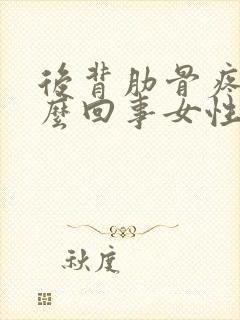 後背肋骨疼
麼回事女性
秋度